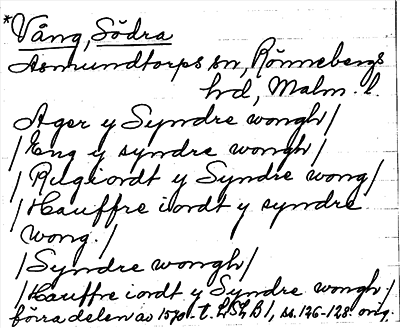 *Vång, Södra
Asmundtorps sn, Rönnebergs
hd, Malm. l.
Ager y Syndre wongh/
/Eng y syndre wongh/
/Rugiordt y Syndre wong/
/Hauffre iordt y syndre
wong./
/Syndre wongh/
/Hauffre iordt y Syndre wongh./
förra delen av 1570-t. LSLB1, ss. 126-128 orig.